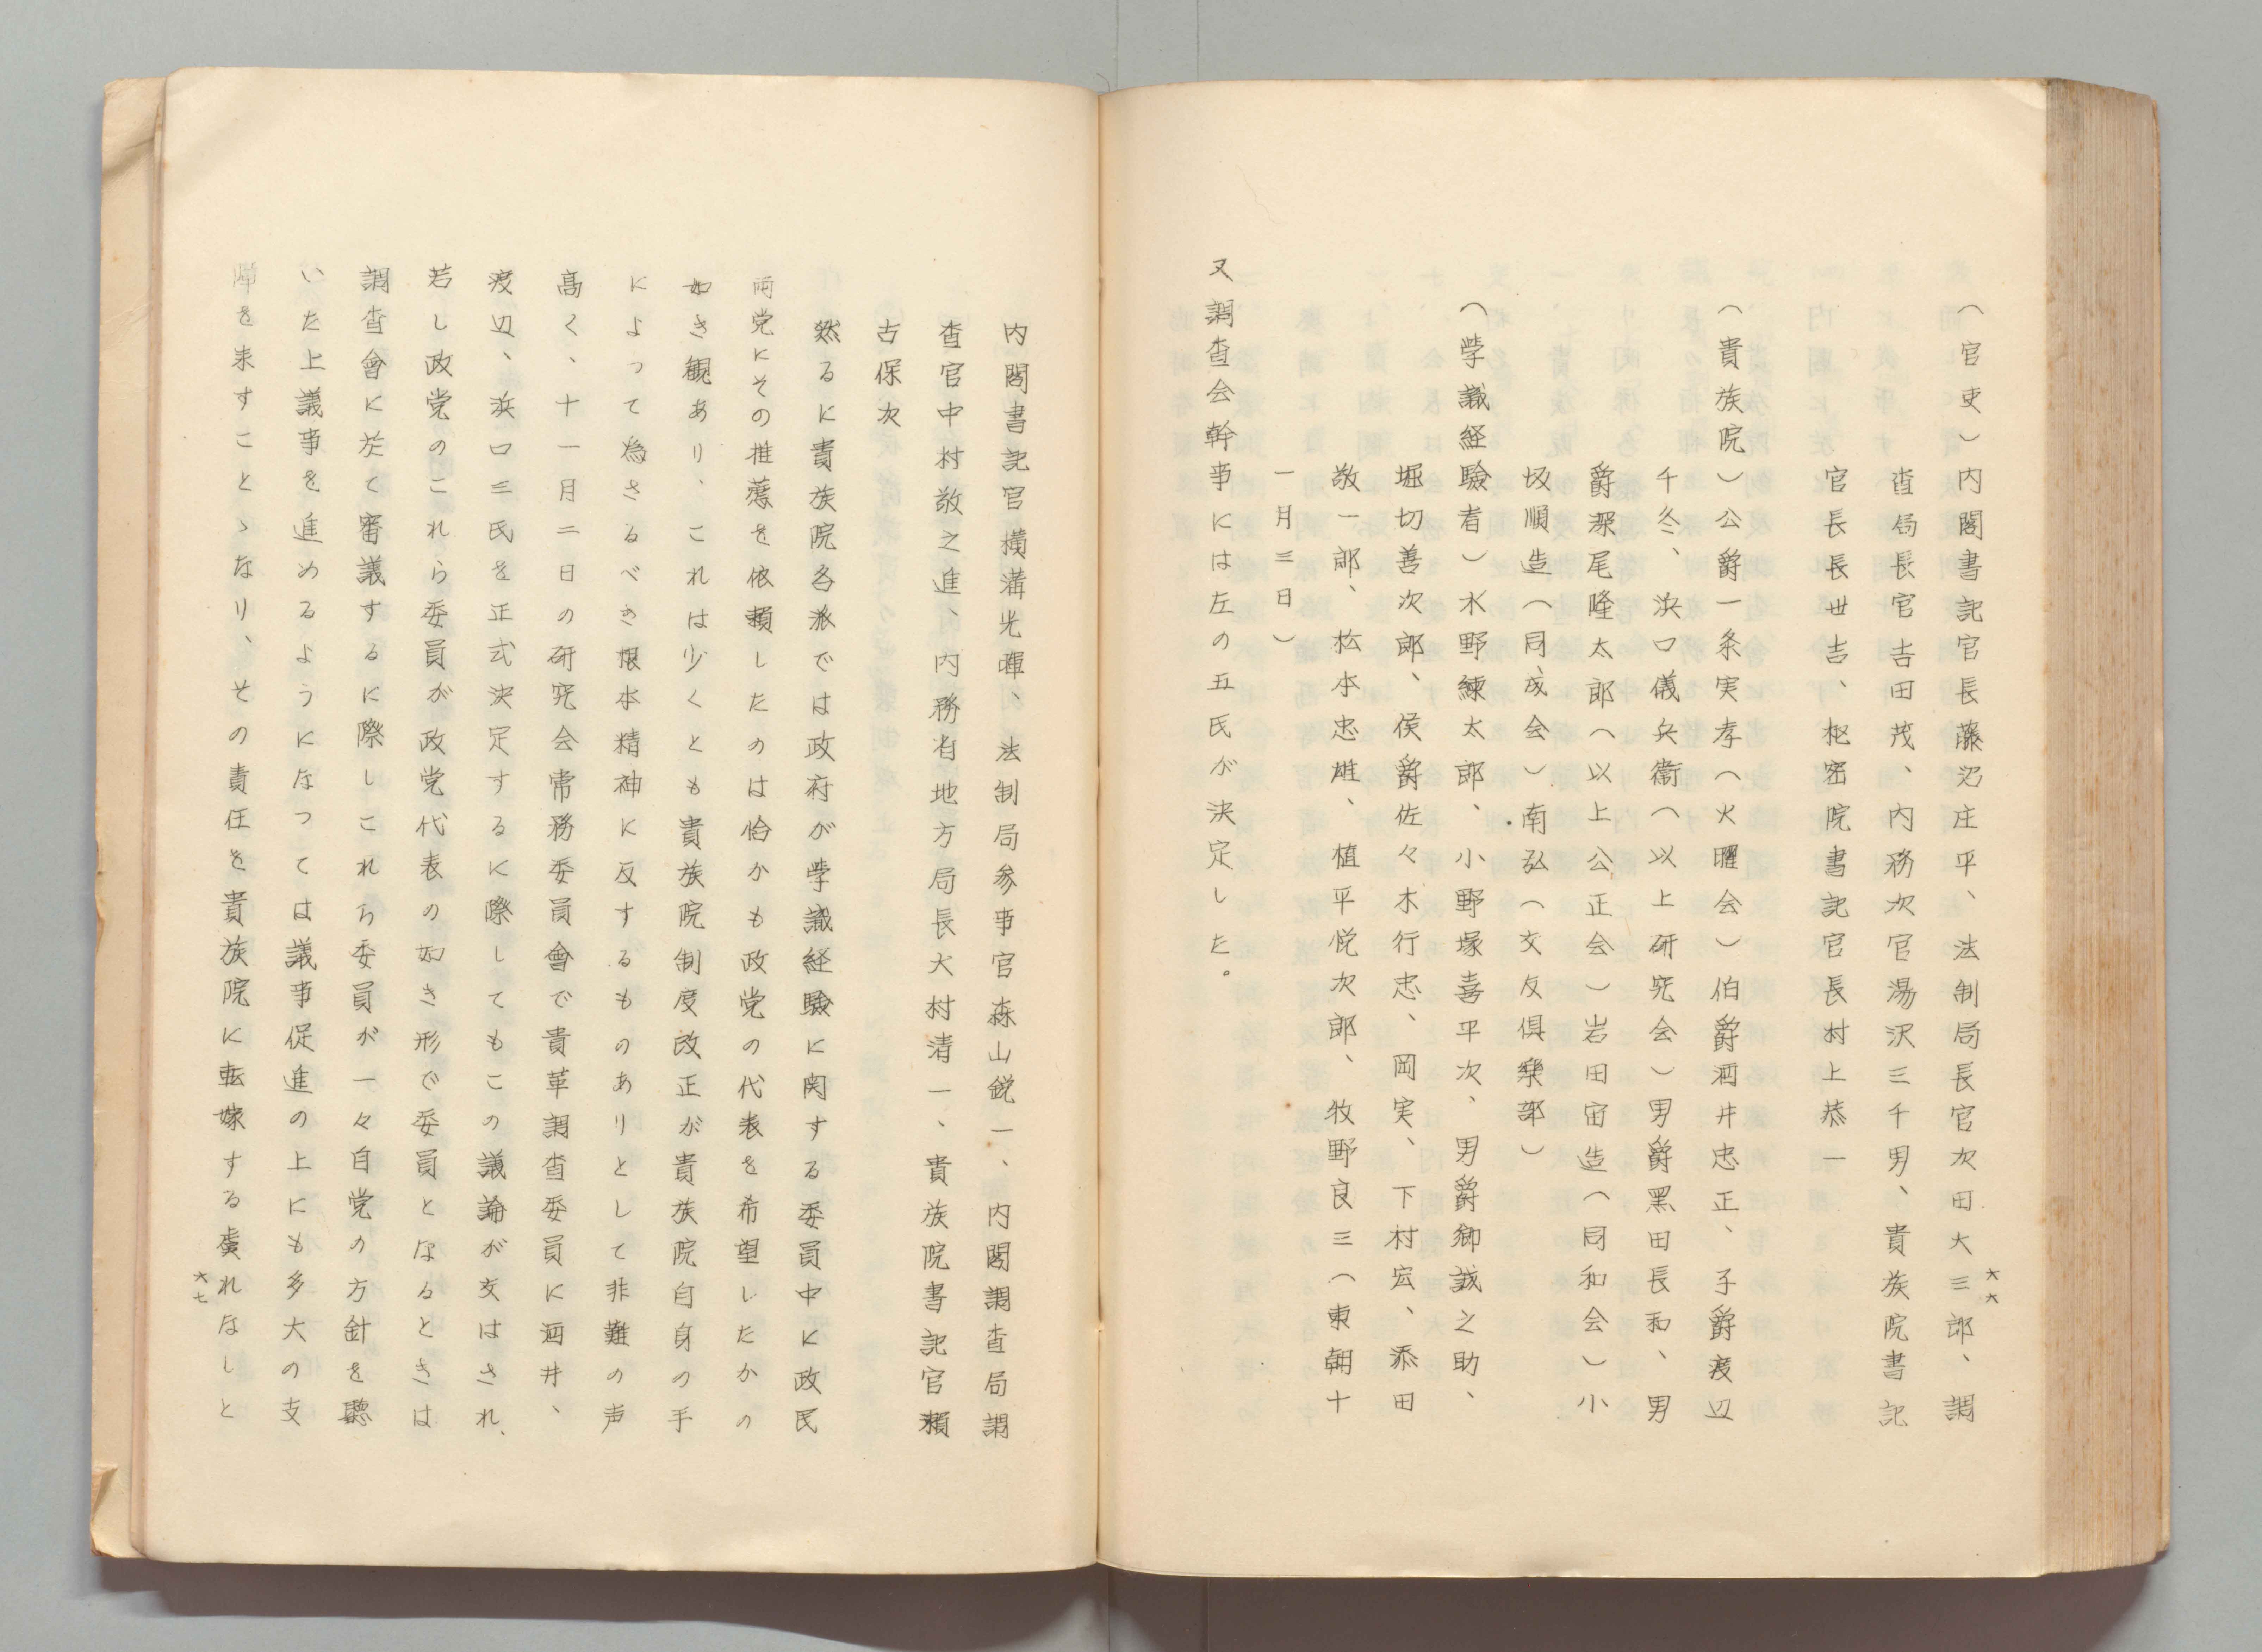 （官吏）内閣書記官長藤沼庄平、法制局長官次田大三郎、調
査局長官吉田茂、内務次官湯沢三千男、貴族院書記
官長長世吉、枢密院書記官長村上恭一
（貴族院）公爵一条実孝（火曜会）伯爵酒井忠正、子爵渡辺
千冬、浜口儀兵衞（以上研究会）男爵黒田長和、男
爵深尾隆太郎（以上公正会）岩田宙造（同和会）小
坂順造（同成会）南弘（交友倶樂部）
（学識経験者）水野練太郎、小野塚喜平次、男爵郷誠之助、
堀切善次郎、侯爵佐々木行忠、岡実、下村宏、添田
敬一郎、松本忠雄、植平悦次郎、牧野良三（東朝十
一月三日）
又調査会幹事には左の五氏が決定した。
六六
内閣書記官横溝光暉、法制局参事官森山鋭一、内閣調査局調
査官中村敬之進、内務省地方局長大村清一、貴族院書記官瀬
古保次
然るに貴族院各派では政府が学識経験に関する委員中に政民
両党にその推薦を依頼したのは恰かも政党の代表を希望したかの
如き観あり、これは少くとも貴族院制度改正が貴族院自身の手
によって為さるべき根本精神に反するものありとして非難の声
高く、十一月二日の研究会常務委員會で貴革調査委員に酒井、
渡辺、浜口三氏を正式決定するに際してもこの議論が交はされ、
若し政党のこれら委員が政党代表の如き形で委員となるときは
調査會に於て審議するに際しこれら委員が一々自党の方針を聽
いた上議事を進めるようになつては議事促進の上にも多大の支
障を来すことゝなり、その責任を貴族院に転嫁する虞れなしと
六七